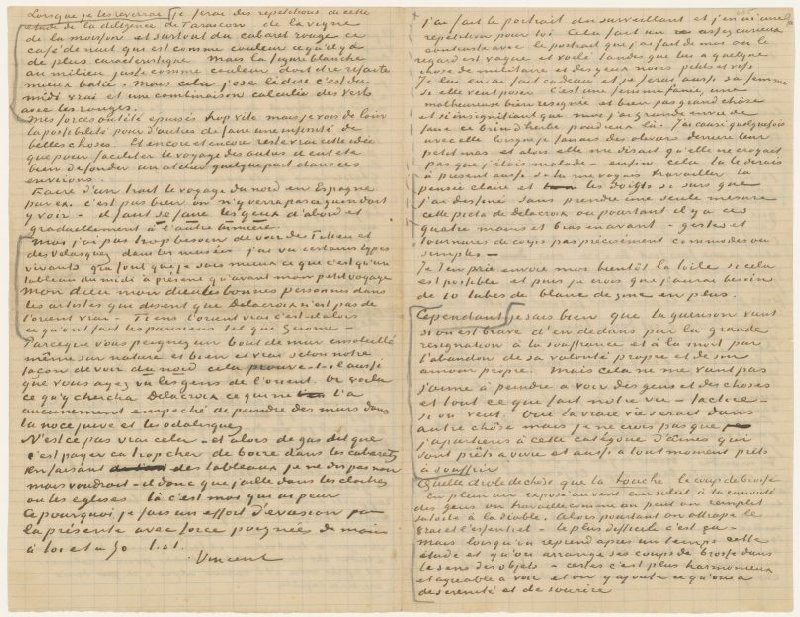 Lorsque je les reverrai je ferai des répétitions de cette
étude de la diligence de Tarascon de la vigne
de la moisson et surtout du cabaret rouge ce
café de nuit qui est comme couleur ce qu'il y a
de plus caractéristique. Mais la figure blanche
au milieu juste comme couleur doit être refaite
mieux batie. Mais cela j'ose le dire c'est du
midi vrai et une combinaison calculée des verts
avec les rouges.
Mes forces ont été epuisés trop vite mais je vois de loin
la possibilité pour d'autres de faire une infinité de
belles choses. Et encore et encore reste vraie cette idée
que pour faciliter le voyage des autres il eut été
bien de fonder un atelier quelque part dans ces
environs.
Faire d'un trait le voyage du nord en Espagne
par ex. c'est pas bien on n'y verra pas ce qu'on doit
y voir - il faut se faire les yeux d'abord et
graduellement à l'autre lumière.
Moi j'ai pas trop besoin de voir des Titien et
des Velasquez dans les musées j'ai vu certains types
vivants qui font que je sais mieux ce que c'est qu'un
tableau du midi à présent qu'avant mon petit voyage
Mon dieu mon dieu les bonnes personnes dans
les artistes qui disent que Delacroix n'est pas de
l'orient vrai. Tiens l'orient vrai c'est-il alors
ce qu'ont fait les parisiens tel que Gerome.-
Parceque vous peignez un bout de mur ensoleillé
même sur nature et bien et vrai selon notre
façon de voir du nord cela prouve-t-il aussi
que vous ayez vu les gens de l'orient. Or voila
ce qu'y cherchait Delacroix ce qui ne l'a
aucunement empeché de peindre des murs dans
la noce juive et les odalisques
N'est ce pas vrai cela - et alors de gas dit que
c'est payer ca trop cher de boire dans les cabarets
en faisant des tableaux je ne dis pas non
mais voudrait-il donc que j'aille dans les cloitres
ou les eglises là c'est moi qui ai peur
Ce pourquoi je fais un effort d'evasion par
la présente avec force poignées de main
à toi et a Jo t.à.t.
Vincent
J'ai fait le portrait du surveillant et j'en ai une
répétition pour toi Cela fait un assez curieux
contraste avec le portrait que j'ai fait de moi où le
regard est vague et voilé tandis que lui a quelque
chose de militaire et des yeux noirs petits et vifs
Je lui en ai fait cadeau et je ferai aussi sa femme
si elle veut poser. C'est une femme fanée, une
malheureuse bien resignée et bien pas grand chose
et si insignifiante que moi j'ai grande envie de
faire ce brin d'herbe poudreux là. J'ai causé quelquefois
avec elle lorsque je faisais des oliviers derriere leur
petit mas et alors elle me disait qu'elle ne croyait
pas que j'étais malade - enfin cela tu le dirais
à présent aussi si tu me voyais travailler la
pensée claire et les doigts si surs que
j'ai dessiné sans prendre une seule mesure
cette pieta de delacroix où pourtant il y a ces
quatre mains et bras en avant - gestes et
tournures de corps pas précisement commodes ou
simples -
Je t'en prie envoie moi bientôt la toile si cela
est possible et puis je crois que j'aurai besoin
de 10 tubes de blanc de zinc en plus.
Cependant je sais bien que la guérison vient
si on est brave d'en dedans par la grande
resignation à la souffrance et à la mort par
l'abandon de sa volonté propre et de son
amour propre. Mais cela ne me vaut pas
j'aime à peindre a voir des gens et des choses
et tout ce qui fait notre vie - factice -
si on veut. Oui la vraie vie serait dans
autre chôse mais je ne crois pas que
j'appartiens à cette catégorie d'âmes qui
sont prêts a vivre et aussi a tout moment prêts
à souffrir
Quelle drole de chôse que la touche le coup de brosse
En plein air exposé au vent au soleil à la curiosité
des gens on travaille comme on peut on remplit
sa toile à la diable. Alors pourtant on attrape le
vrai et l'essentiel - le plus difficile c'est ça -
Mais lorsqu'on reprend apres un temps cette
étude et qu'on arrange ses coups de brosse dans
le sens des objets - certes c'est plus harmonieux
et agreable a voir et on y ajoute ce qu'on a
de serenité et de sourire